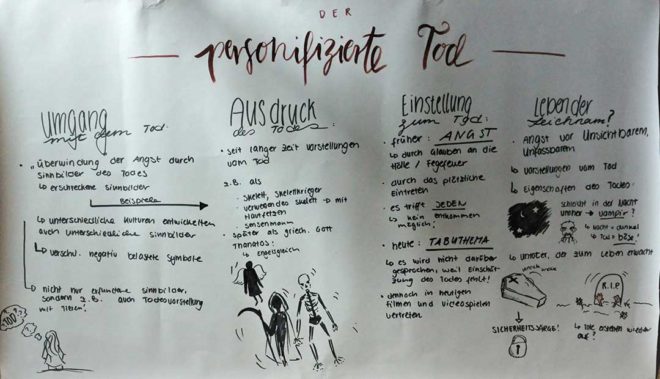 DER
personifizierte Tod
Umgang
mit dem Tod:
• Überwindung der Angst durch
Sinnbilder des Todes
↳ erschreckene Sinnbilder
Beispiele
↳ unterschiedliche Kulturen entwickelten
auch unterschiedliche Sinnbilder
↳ versch. negativ belastete Symbole
↳ nicht nur erfundene Sinnbilder,
sondern z.B. auch Todesvorstellung
mit Tieren!
TOD?
AUSDRUCK
des Todes:
• seit langer Zeit Vorstellungen
vom Tod
z.B. als
• Skelett, Skelettkrieger
• verwesendes Skelett → mit
Hautfetzen
• Sensenmann
• Später als griech. Gott
Thanatos:
↳ engelsgleich
Einstellung
zum Tod:
früher: ANGST
↳ durch Glauben an die
Hölle / Fegefeuer
• durch das plötzliche
Eintreten
• es trifft JEDEN
↳ kein entkommen
möglich!
• heute: TABUTHEMA
↳ es wird nicht darüber
gesprochen, weil Einschät-
zung des Todes fehlt!
• dennoch in heutigen
Filmen und Videospielen
vertreten
Leben der
Leichnam?
• Angst vor Unsichtbaren,
Unfassbaren
↳ Vorstellungen vom Tod
↳ Eigenschaften des Todes:
schleicht in der Nacht
umher → Vampir?
↳ Nacht = dunkel
↳ Tod = böse!
↳ Untoter, der zum Leben erwacht
R.I.P
↓
SICHERHEITSSÄRGE!
↳ Tote erstehen wieder
auf?